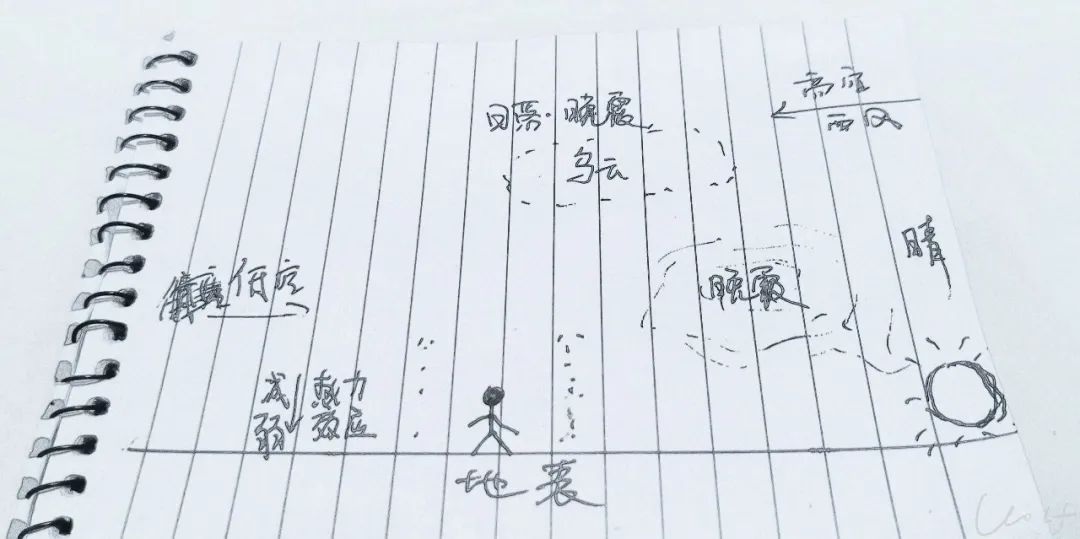 高空
西风
日落·晚霞
乌云
晴
晚霞
低空
减弱
热力效应
地表